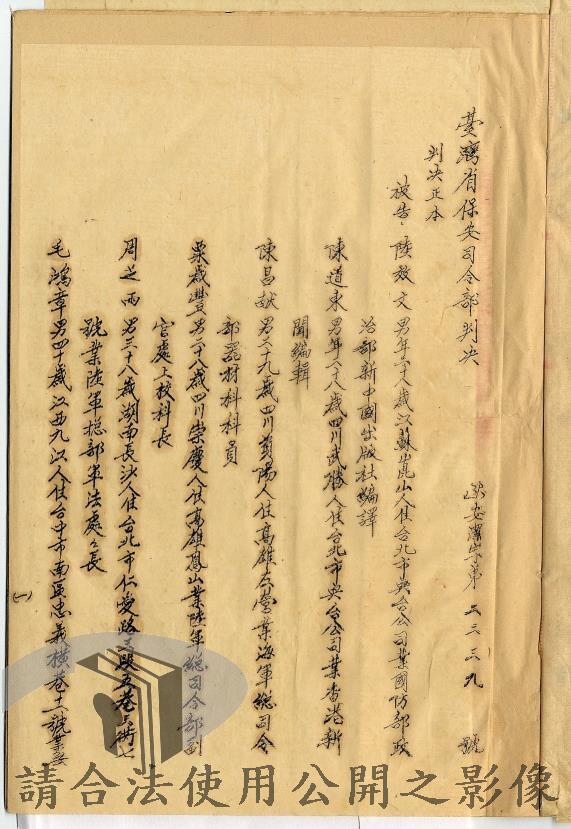 臺灣省保安司令部判決
安潔字第二三三九號
判決正本
被告：陸效文 男年二十八歲江蘇崑山人住台北市央台公司業國防部政
治部新中國出版社編譯
陳道東 男年二十八歲四川武勝人住台北市央台公司業香港新
聞編輯
陳昌獻 男二十九歲四川簡陽人住高雄左營業海軍總司令
部器材科科員
栗歲豐 男二十八歲四川崇慶人住高雄鳳山業陸軍總司令部副
官處上校科長
周芝雨 男三十八歲湖南長沙人住台北市仁愛路段五巷街七
號業陸軍總部軍法處處長
毛鴻章 男四十歲江西九江人住台中市南區忠義橫巷十二號業
(一)
請合法使用公開之影像